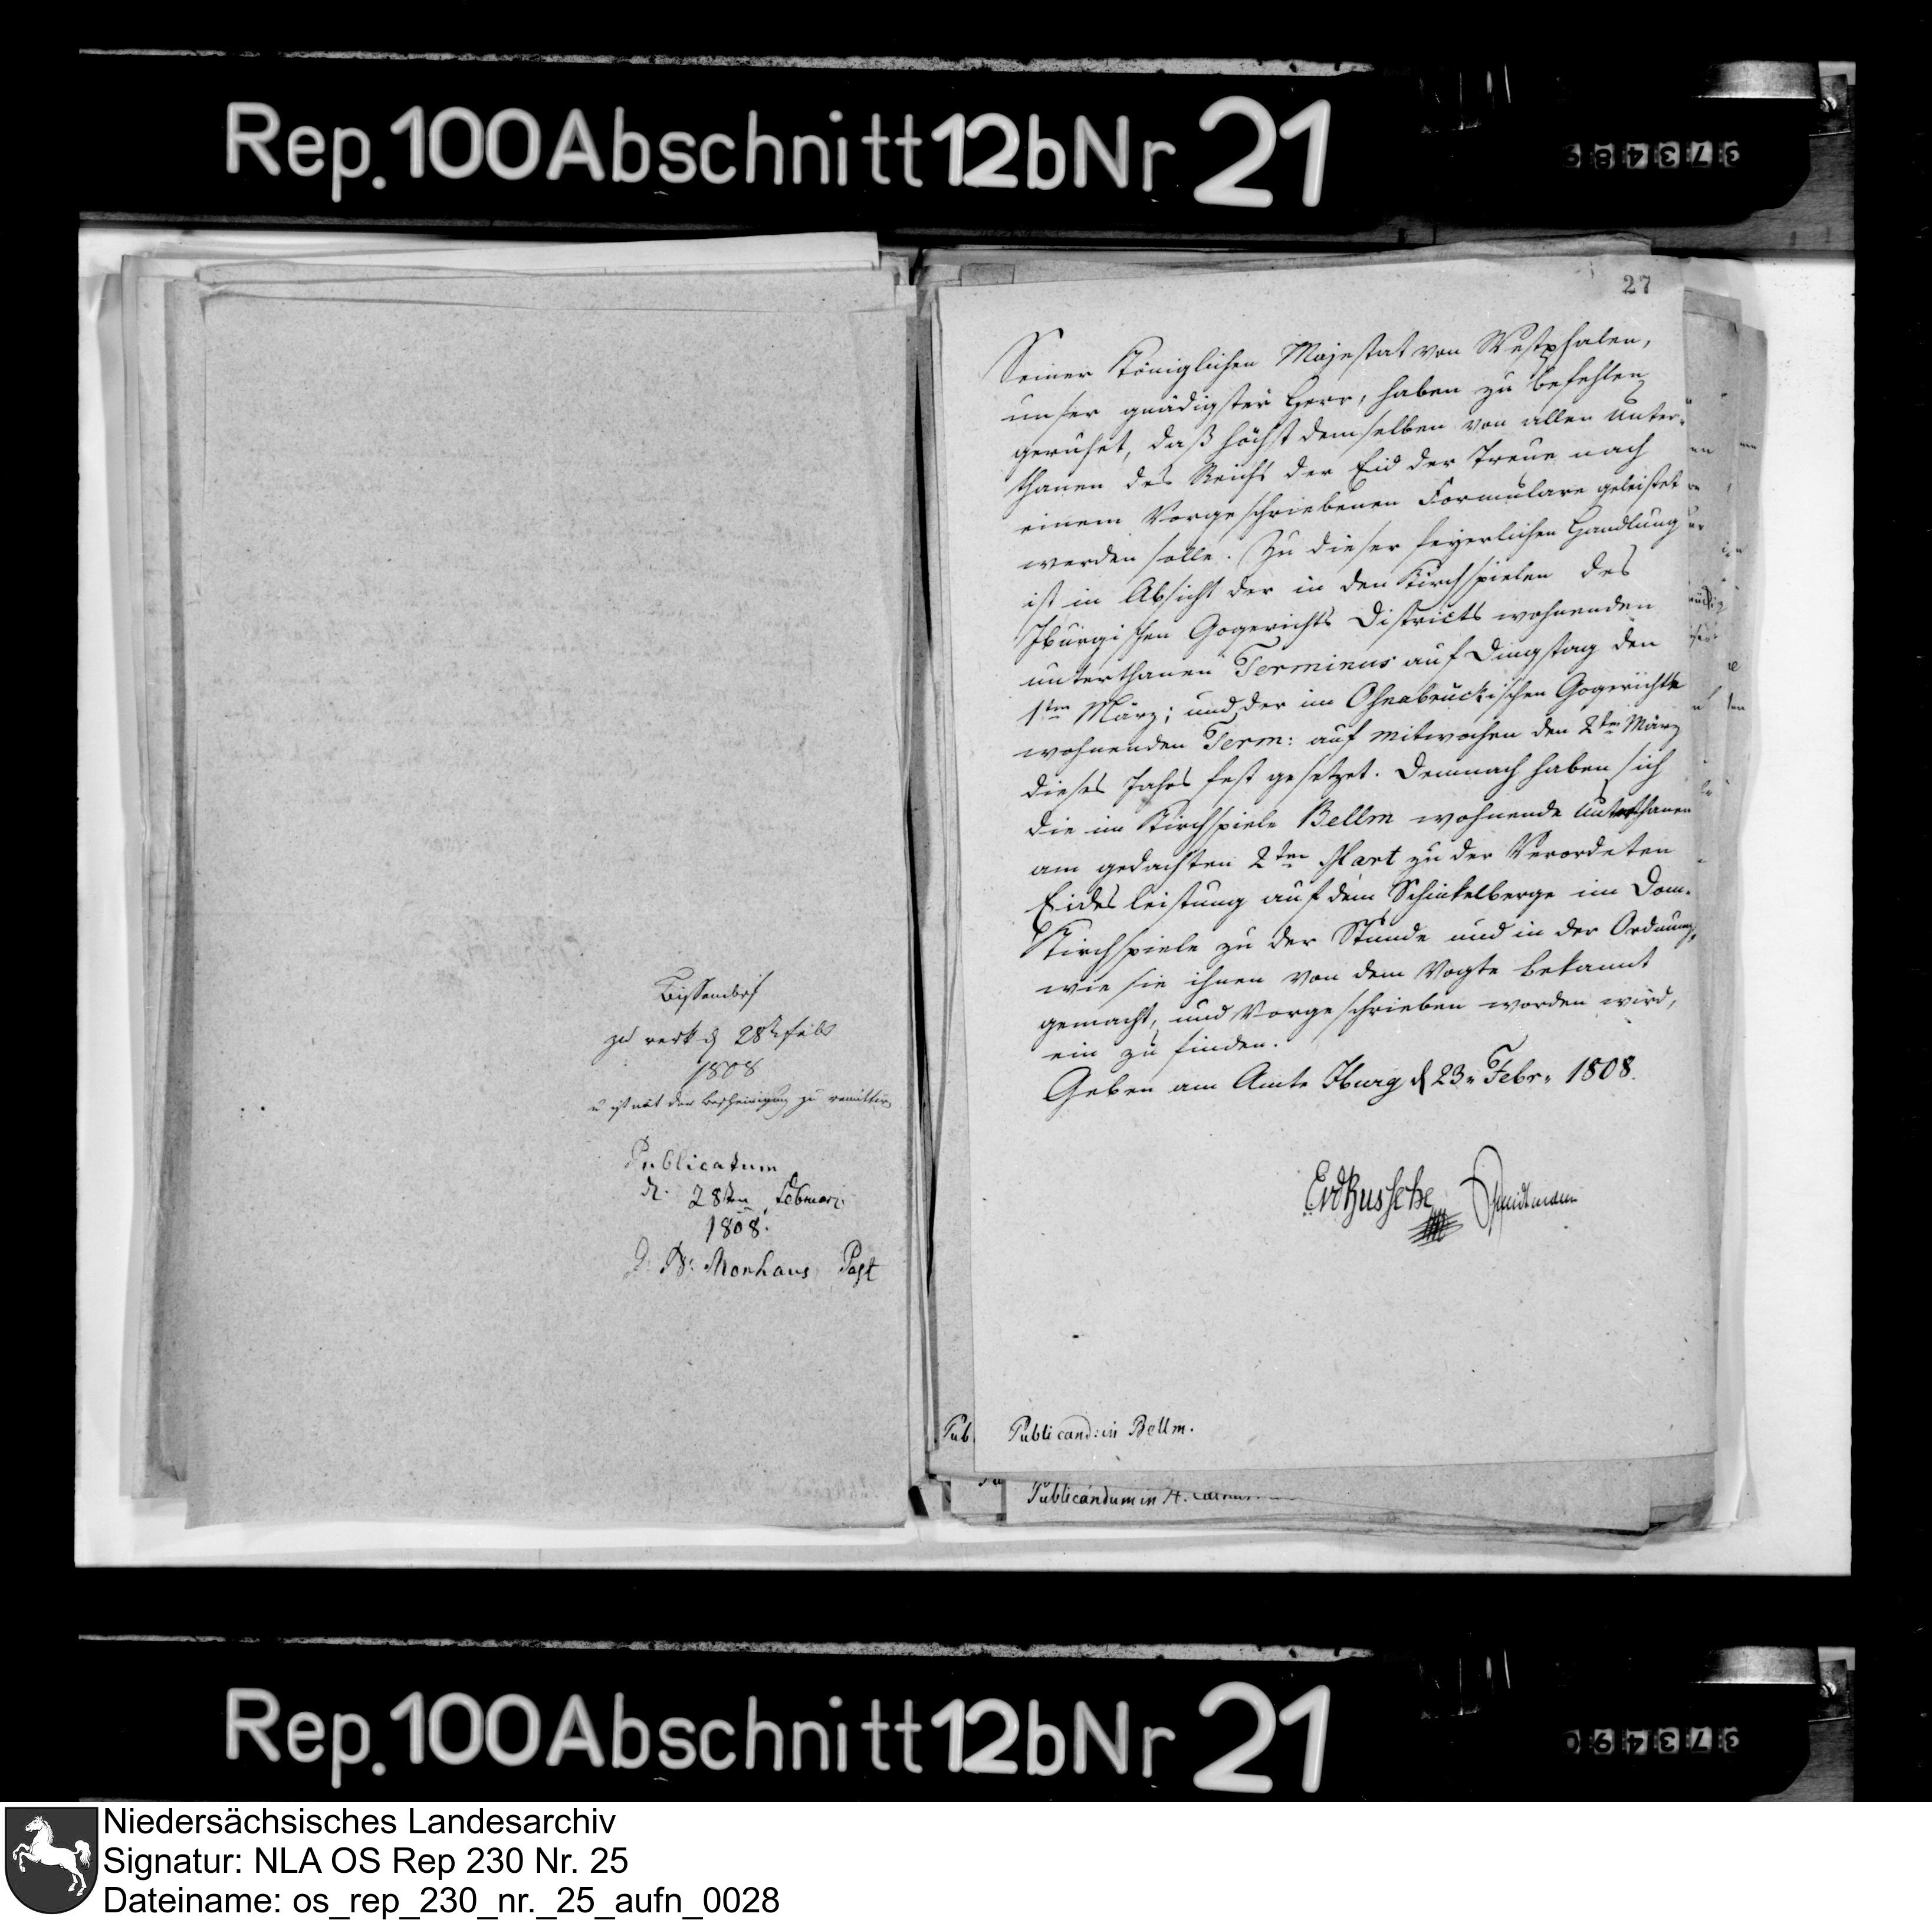 Rep. 100 Abschnitt 12b Nr 21
373489
Bissendorf
28
1808
Publicatum
d. 28ten Februari
1808.
Monhaus Past
27
Seiner Königlichen Majestat von Westphalen,
unser gnädigster Herr, haben zu befehlen
geruhet, daß höchst demselben von allen Unter-
thanen des Reichs der Eid der Treue nach
einem Vorgeschriebenen Formulare geleistet
werden solle. Zu dieser feyerlichen Handlung
ist in Absicht der in den Kirchspielen des
Iburgischen Gogerichts Districts wohnenden
unterthanen Terminus auf Dingstag den
1ten März; und der im Osnabrückischen Gogerichte
wohnenden Term: auf Mitwochen den 2ten März
dieses Jahrs fest gesetzet. Demnach haben sich
die im Kirchspiele Bellm wohnende Unterthanen
am gedachten 2ten Mart zu der Verordeten
Eides leistung auf dem Schinkelberge im Dom-
Kirchspiele zu der Stunde und in der Ordnung,
wie sie ihnen von dem Vogte bekannt
gemacht, und Vorgeschrieben worden wird,
ein zu finden.
Geben am Amte Iburg d 23. Febr. 1808.
Publicand: in Bellm.
Pub
Publicandum in St.
Rep. 100 Abschnitt 12b Nr 21
373490
Niedersächsisches Landesarchiv
Signatur: NLA OS Rep 230 Nr. 25
Dateiname: os_rep_230_nr._25_aufn_0028